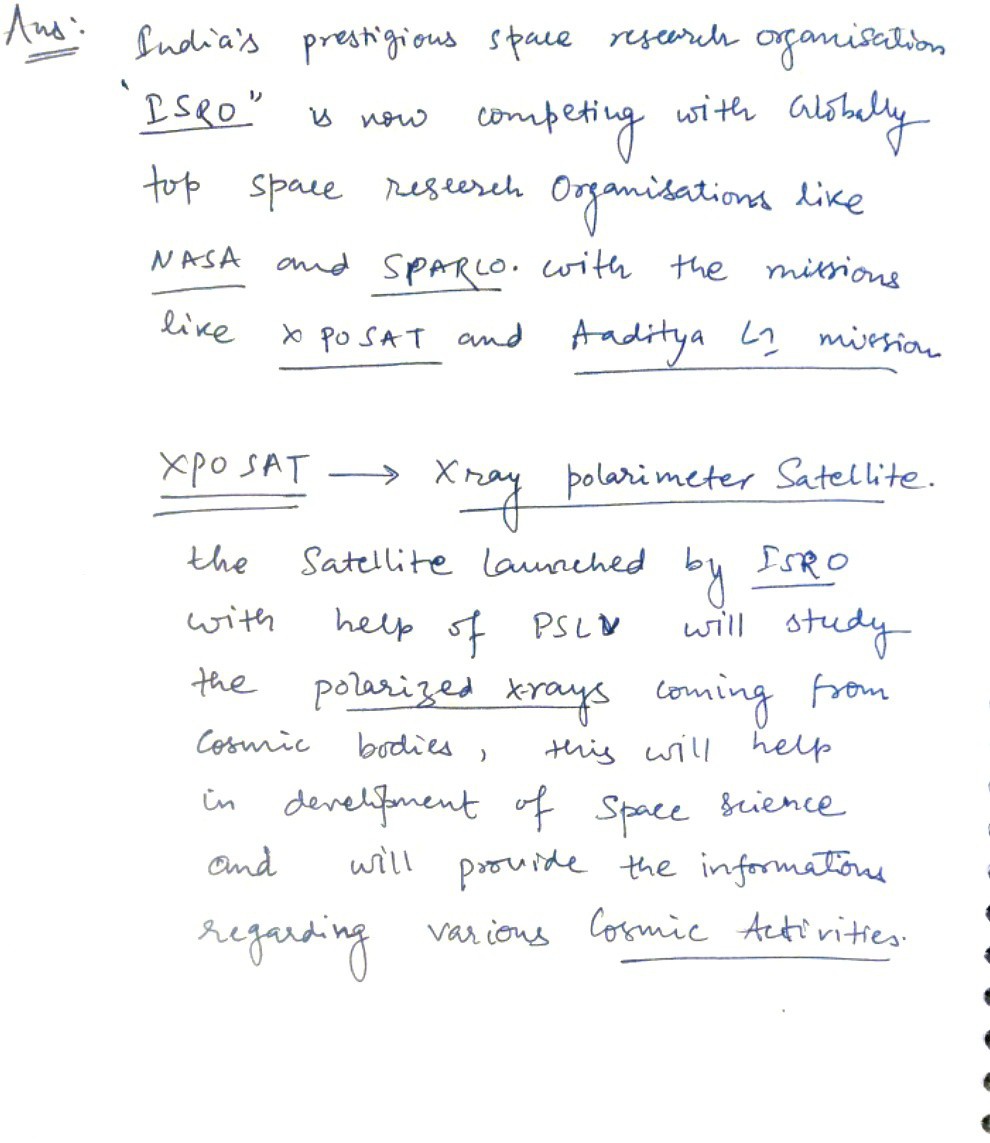 Ans:
India's prestigious space research organisation
"ISRO" is now competing with Globally
top space reseerch Organisations like
NASA and SPARCO. with the missions
like XPOSAT and Aaditya L1 mission
XPOSAT → Xray polarimeter Satellite.
the Satellite launched by ISRO
with help of PSLV will study
the polarized x-rays coming from
Cosmic bodies, this will help
in development of Space science
and will provide the informations
regarding various Cosmic Activities.